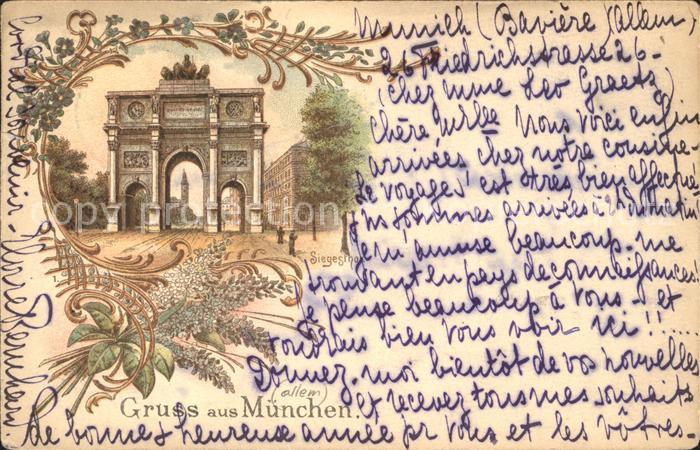 Munich (Bavière) (allem)
26 Friedrichstrasse 26 -
(chez Mme Leo Graetz)
Chère Nous voici enfin
arrivées chez notre cousine -
Le voyage s'est très bien effectué
ns sommes arrivées à
je m'amuse beaucoup. me
trouvant en pays de connaissances!
Je pense beaucoup à vous - et
voudrais bien vous voir ici!!..
Donnez-moi bientôt de vos nouvelles
et recevez tous mes souhaits
de bonne & heureuse année pr vous et les vôtres..
Siegesthor
(allem)
Gruss aus München.
souvenir
copyright protected